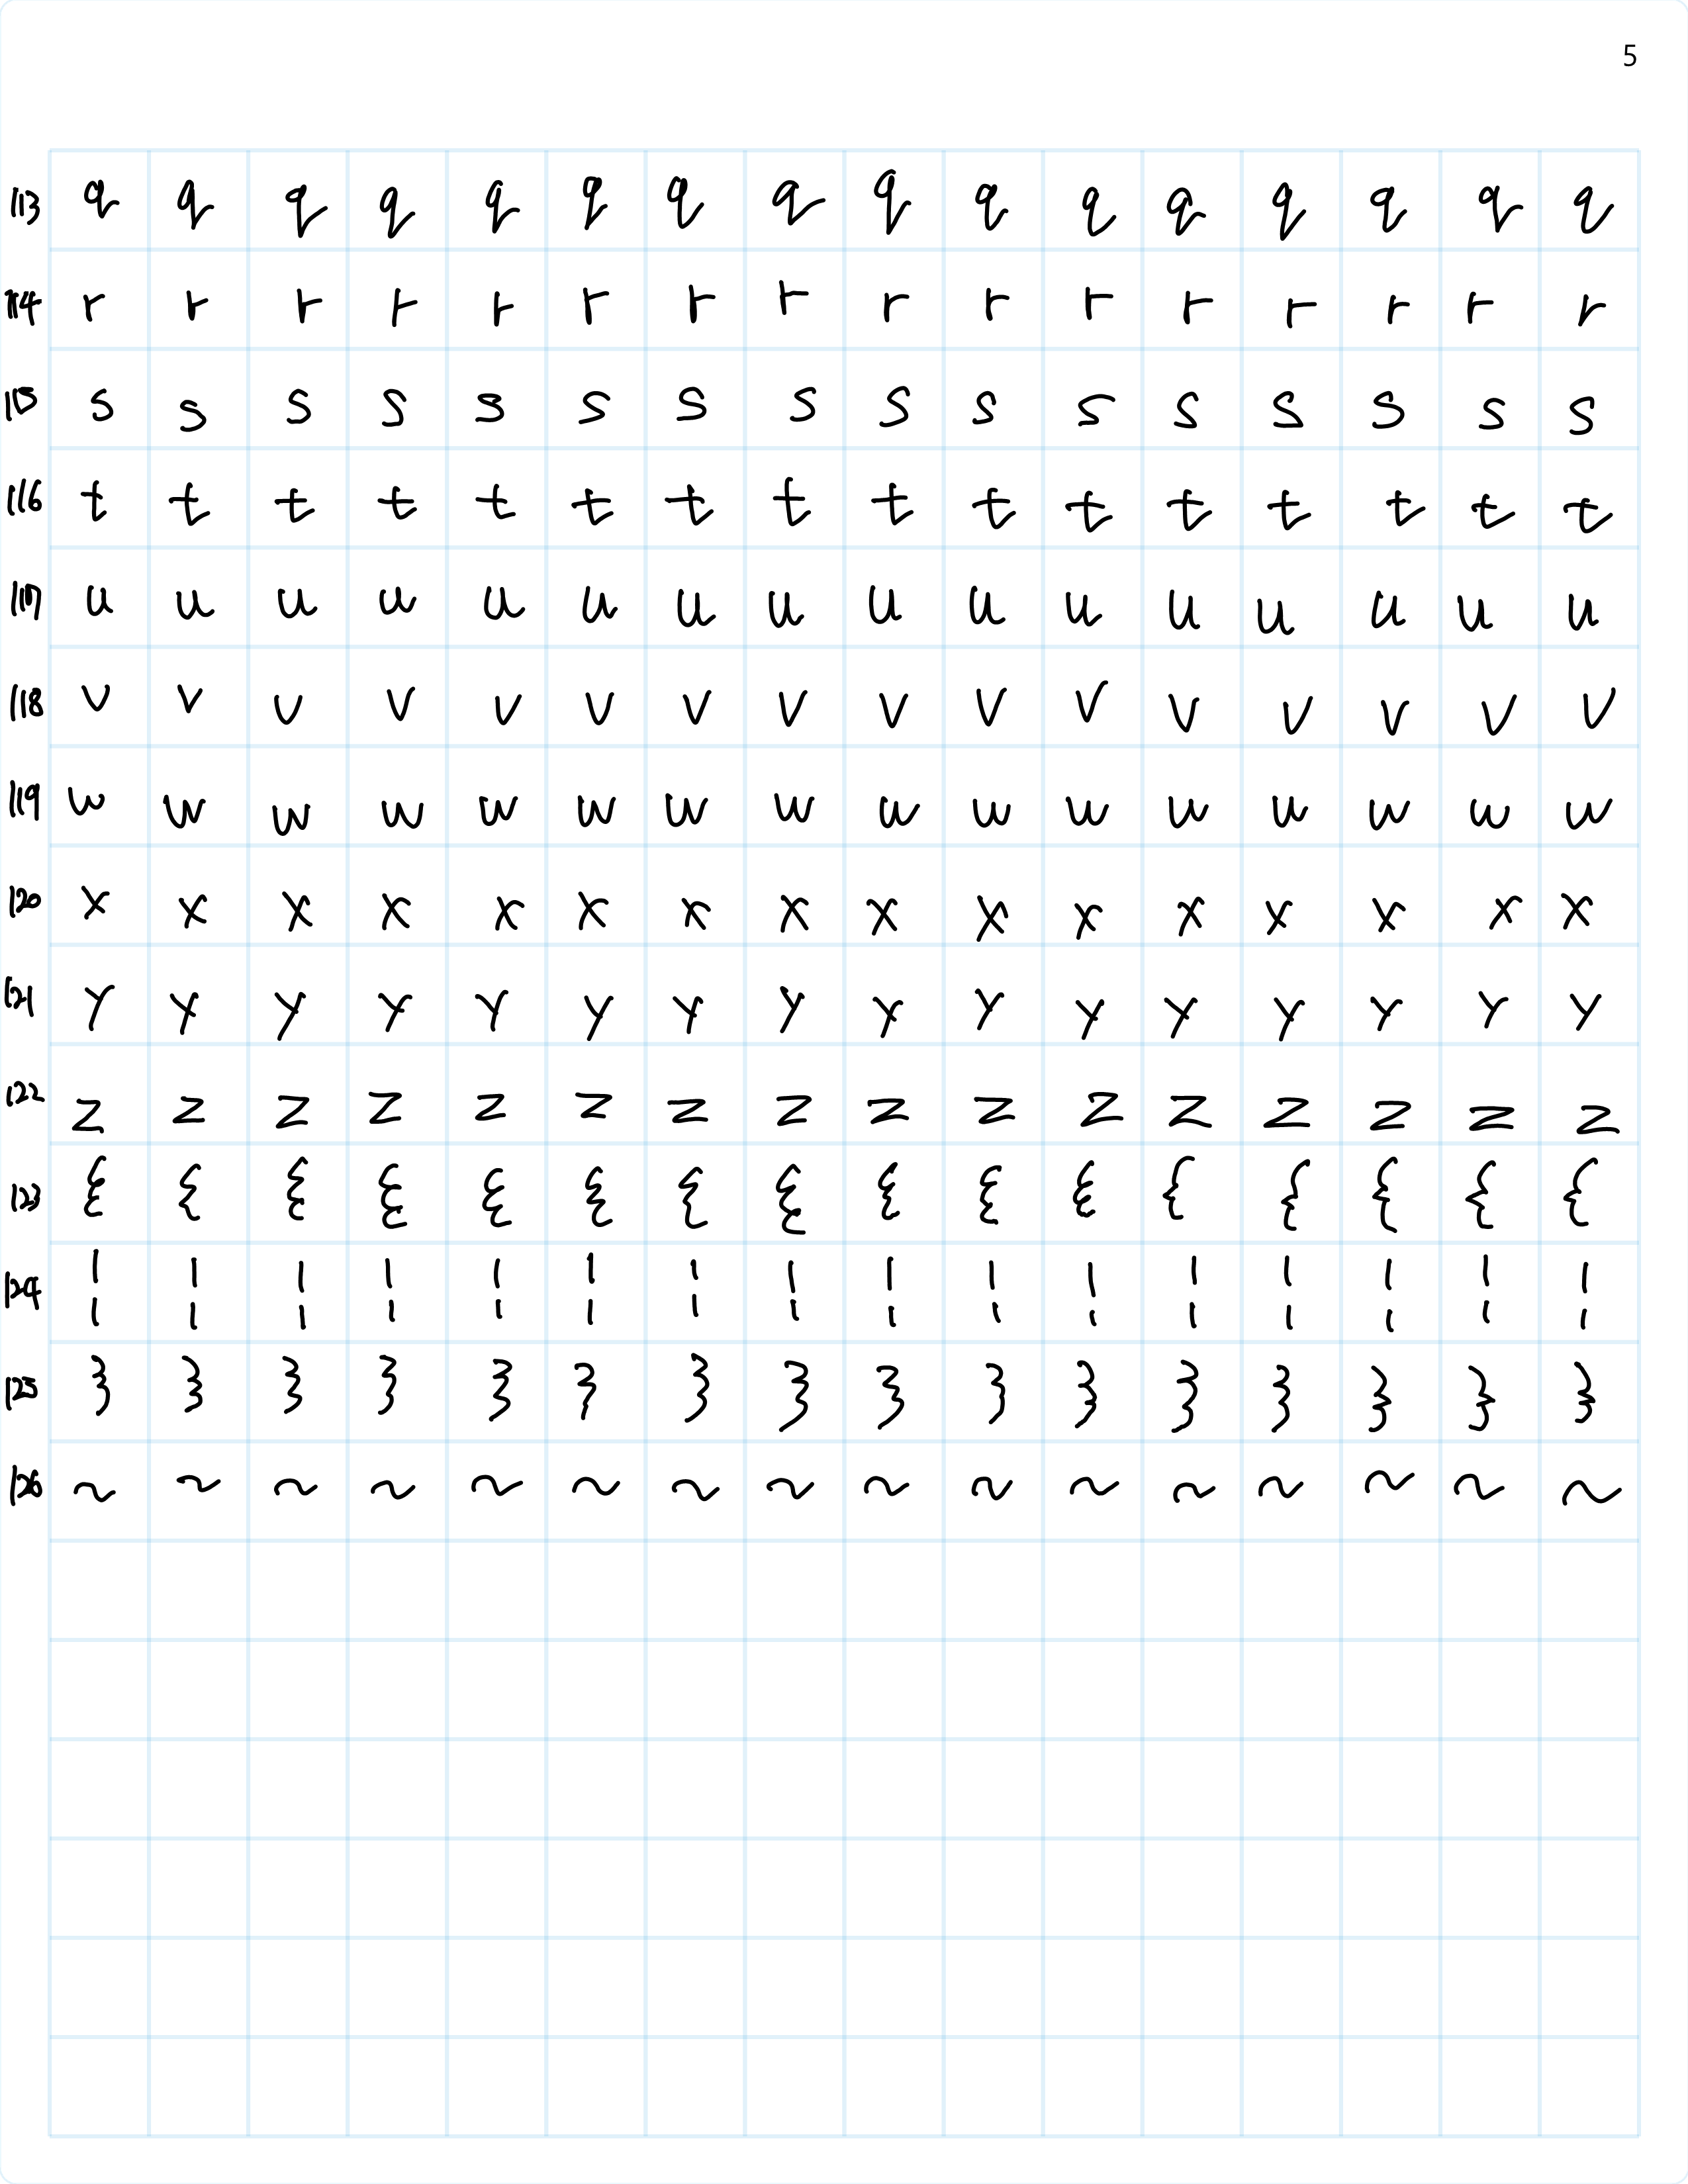 5
113 q q q q q q q q q q q q q q q q
114 r r r r r r r r r r r r r r r r
115 s s s s s s s s s s s s s s s s
116 t t t t t t t t t t t t t t t t
117 u u u u u u u u u u u u u u u u
118 v v v v v v v v v v v v v v v v
119 w w w w w w w w w w w w w w w w
120 x x x x x x x x x x x x x x x x
121 y y y y y y y y y y y y y y y y
122 z z z z z z z z z z z z z z z z
123 { { { { { { { { { { { { { { { {
124 ¦ ¦ ¦ ¦ ¦ ¦ ¦ ¦ ¦ ¦ ¦ ¦ ¦ ¦ ¦ ¦
125 } } } } } } } } } } } } } } } }
126 ~ ~ ~ ~ ~ ~ ~ ~ ~ ~ ~ ~ ~ ~ ~ ~